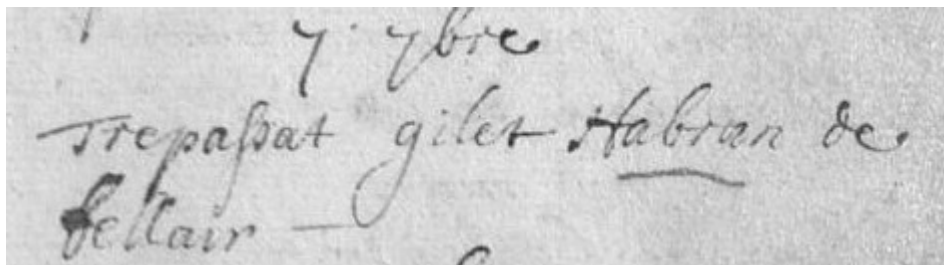 7. 7bre
Trepassat gilet Habran de
bellair —